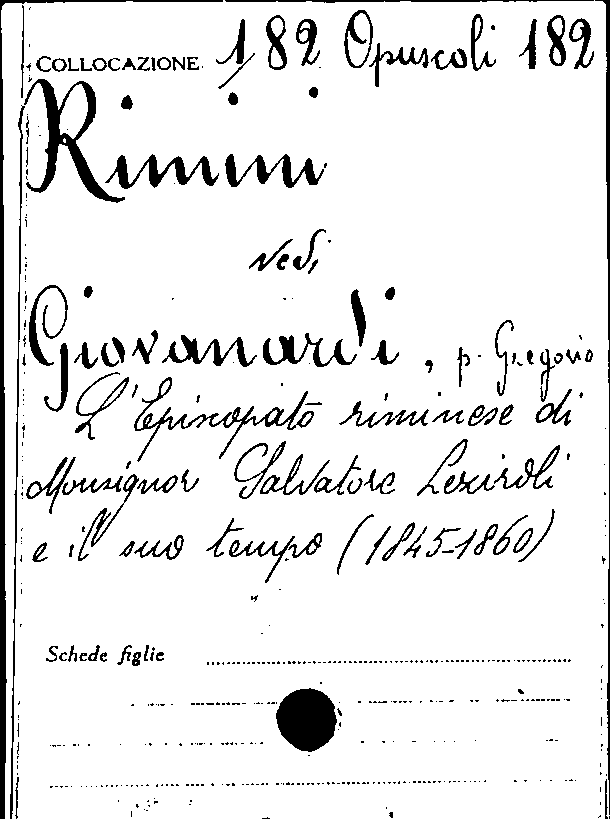 COLLOCAZIONE 1/82 Opuscoli 182
Rimini
vedi
Giovanardi, p. Gregorio
L'Episcopato riminese di
Monsignor Salvatore Leziroli
e il suo tempo (1845-1860)
Schede figlie